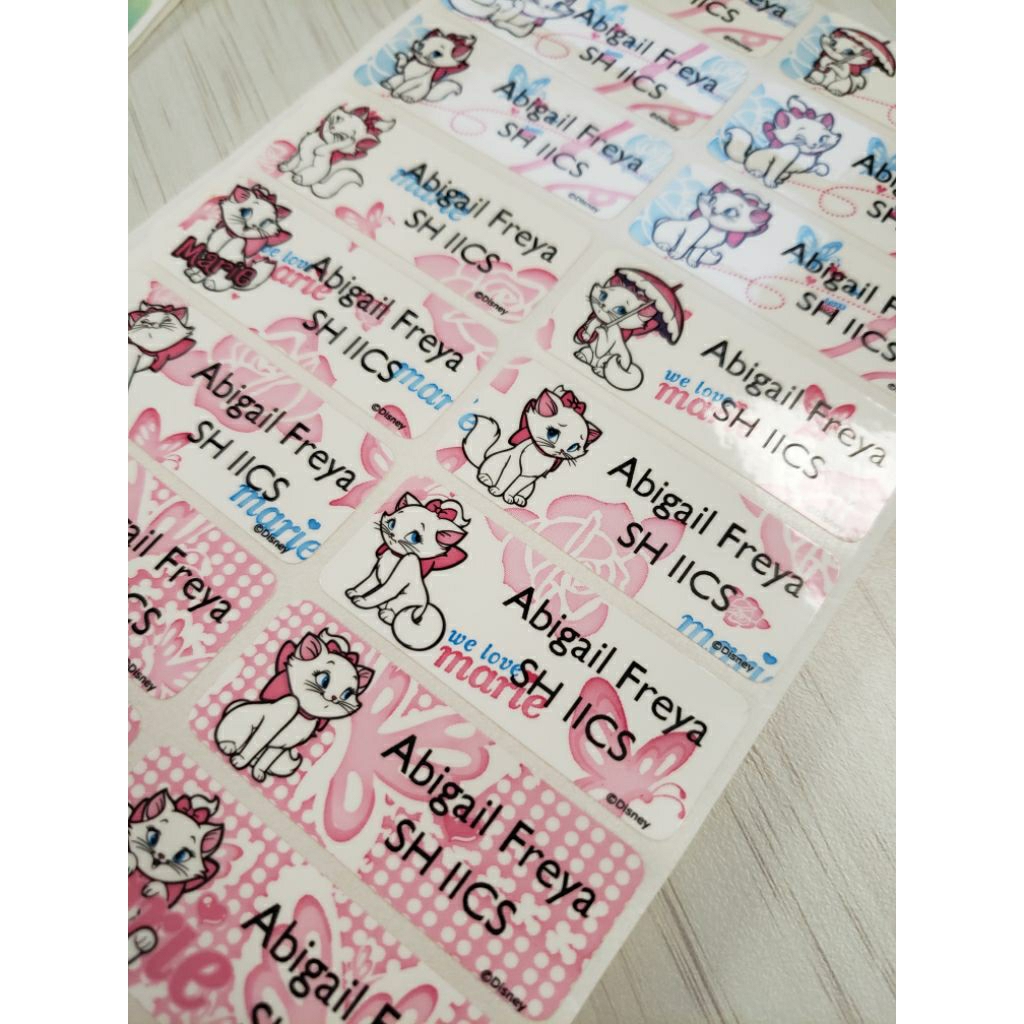 IICS
©Disney
Abigail Freya
SH IICS
©Disney
Abigail Freya
SH IICS
©Disney
marie
Abigail Freya
SH IICS
©Disney
Marie
we love
marie
Abigail Freya
SH IICS
marie
©Disney
Abigail Freya
SH IICS
marie
©Disney
Freya
©Disney
Abigail Freya
SH IICS
we love
Abigail Freya
SH IICS
©Disney
Abigail Freya
SH IICS
marie
©Disney
we love
marie
Abigail Freya
SH IICS
©Disney
Abigail Freya
SH IICS
©Disney
Abigail Freya